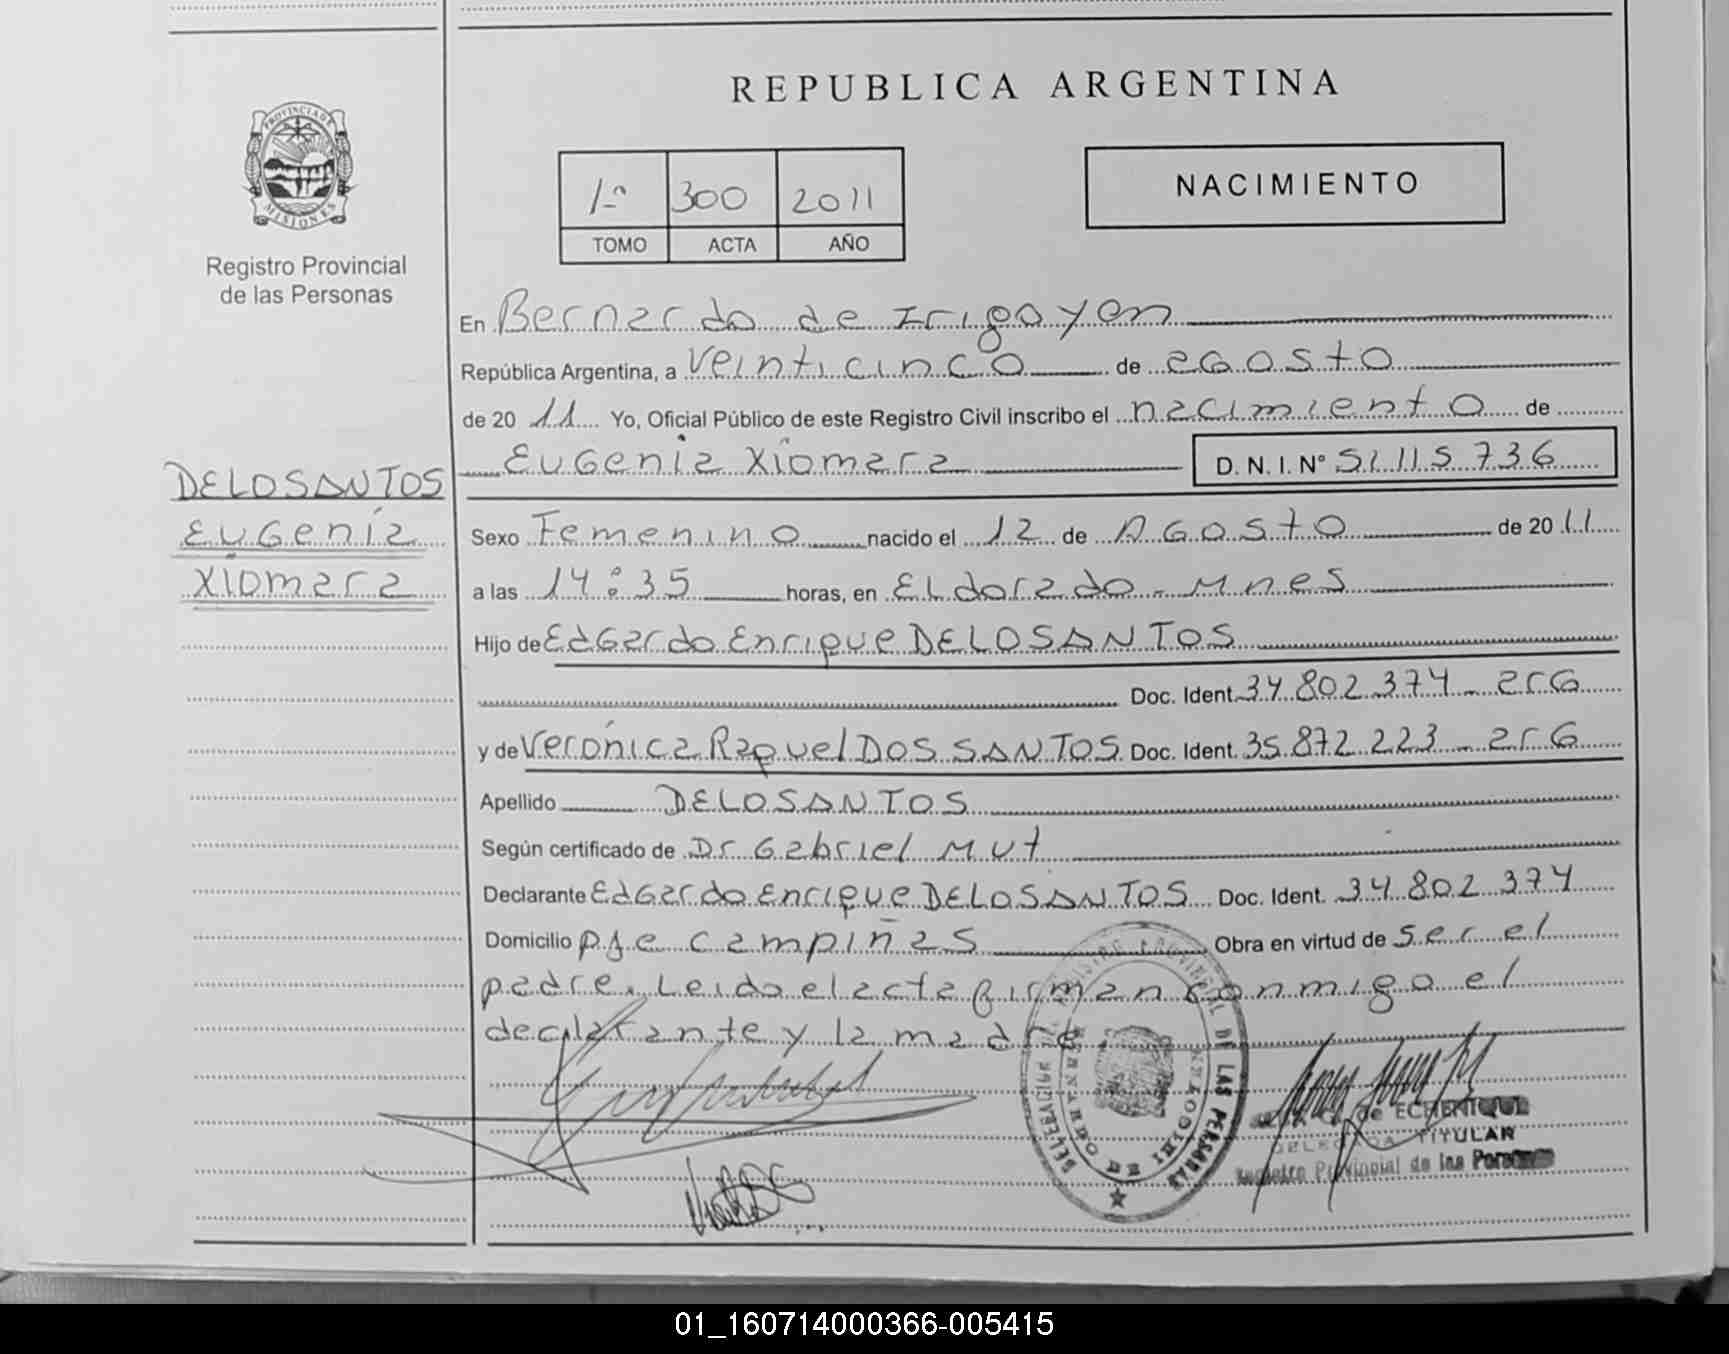 REPUBLICA ARGENTINA
PROVINCIA DE
MISIONES
Registro Provincial
de las Personas
1º 300 2011
TOMO ACTA AÑO
NACIMIENTO
En Bernardo de Irigoyen
República Argentina, a veinticinco de agosto
de 2011 Yo, Oficial Público de este Registro Civil inscribo el nacimiento de
Eugenia Xiomara D.N.I.Nº 51.115.736
DELOSANTOS
Eugenia
Xiomara
Sexo Femenino nacido el 12 de Agosto de 2011
a las 14:35 horas, en ELdorado - Mnes
Hijo de EdGardo Enrique DELOSANTOS
Doc. Ident. 34.802.374 - arG
y de Verónica Raquel DOS SANTOS Doc. Ident. 35.872.223 - arG
Apellido DELOSANTOS
Según certificado de Dr Gabriel Mut
Declarante EdGardo Enrique DELOSANTOS Doc. Ident. 34.802.374
Domicilio pje campiñas Obra en virtud de ser el
padre. Leido el acta firman conmigo el
declarante y la madre
REGISTRO PROVINCIAL DE LAS PERSONAS
BERNARDO DE IRIGOYEN
de ECHENIQUE
DELEGADA TITULAR
Registro Provincial de las Personas
01_160714000366-005415